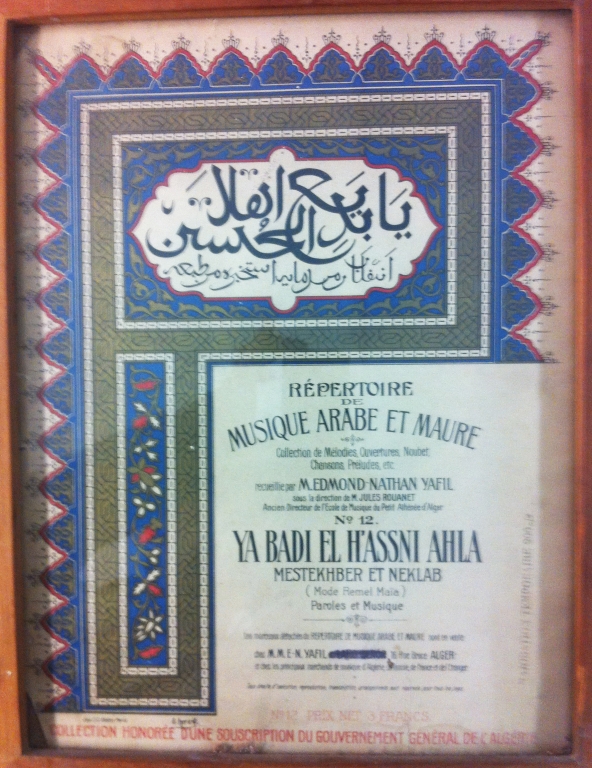 يا بديع
الحسن
انقلاب
RÉPERTOIRE
DE
MUSIQUE ARABE ET MAURE
Collection de Mélodies, Ouvertures, Noubet,
Chansons, Préludes, etc
recueillie par M. EDMOND-NATHAN YAFIL
sous la direction de M. JULES ROUANET
Ancien Directeur de l'Ecole de Musique du Petit Athénée d'Alger
No 12.
YA BADI EL H'ASSNI AHLA
MESTEKHBER ET NEKLAB
(Mode Remel Maïa)
Paroles et Musique
Les morceaux détachés du RÉPERTOIRE DE MUSIQUE ARABE ET MAURE sont en vente
chez M.M. E-N. YAFIL 16 Rue Bruce ALGER
et chez les principaux marchands de musique d'Algérie, de Tunisie, de France et de l'Etranger
No 12 PRIX NET 3 FRANCS
COLLECTION HONORÉE D'UNE SOUSCRIPTION DU GOUVERNEMENT GÉNÉRAL DE L'ALGÉRIE